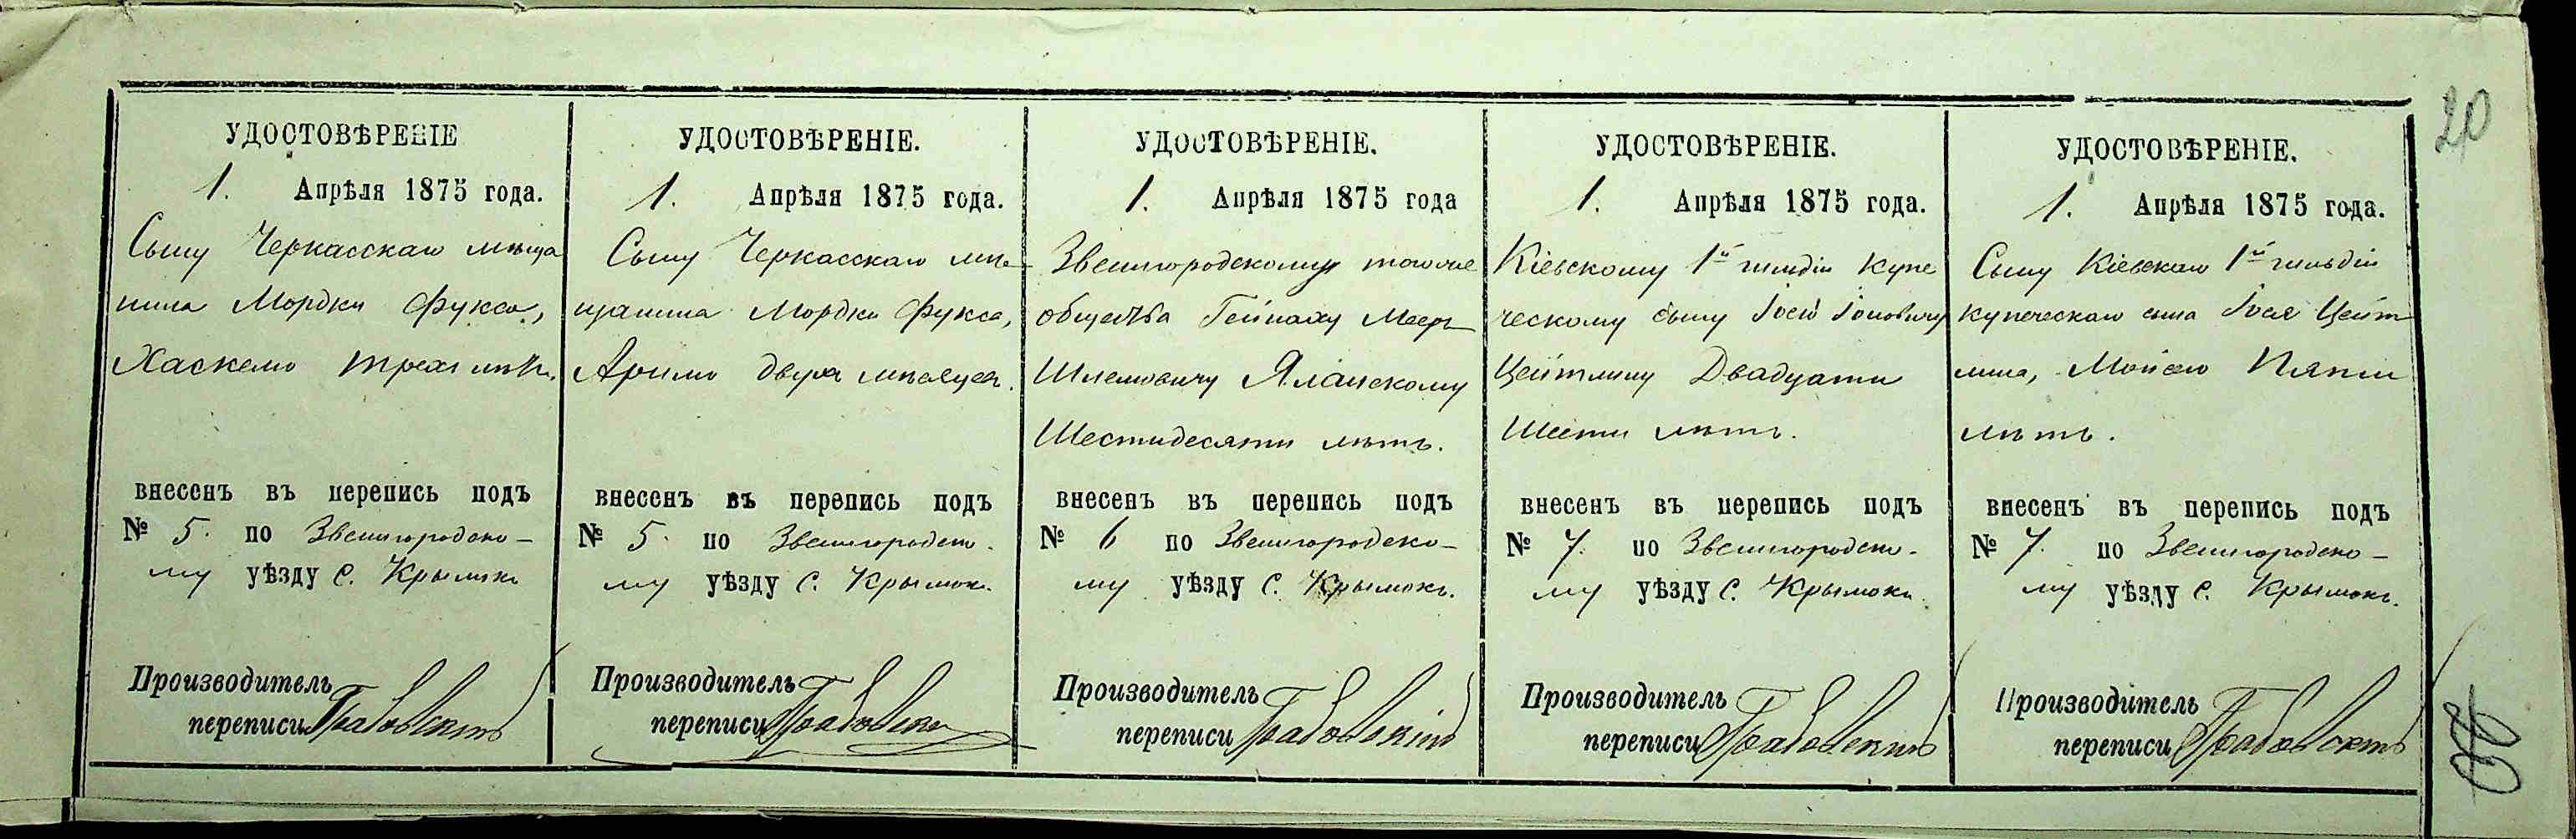 20
УДОСТОВѢРЕНІЕ
1. Апрѣля 1875 года.
Сыну Черкасскаго мѣща
нина Мордки Фукса,
Хаскелю трехъ лѣтъ.
внесенъ въ перепись подъ
№ 5. по Звенигородско-
му уѣзду С. Крымки
Производитель
переписи Грабовскій
УДОСТОВѢРЕНІЕ.
1. Апрѣля 1875 года.
Сыну Черкасскаго мѣ
щанина Мордки Фукса,
Арилю двухъ мѣсяцевъ.
внесенъ въ перепись подъ
№ 5. по Звенигородско-
му уѣзду С. Крымокъ.
Производитель
переписи Грабовскій
УДОСТОВѢРЕНІЕ.
1. Апрѣля 1875 года
Звенигородскому
общества Гейнаху Меер
Шлемовичу Яланскому
Шестидесяти лѣтъ.
внесенъ въ перепись подъ
№ 6 по Звенигородско-
му уѣзду С. Крымокъ.
Производитель
переписи Грабовскій
УДОСТОВѢРЕНІЕ.
1. Апрѣля 1875 года.
Кіевскому 1й гильдіи купе
ческому сыну Іосю Іоновичу
Цейтлину Двадцати
Шести лѣтъ.
внесенъ въ перепись подъ
№ 7. по Звенигородско-
му уѣзду С. Крымокъ.
Производитель
переписи Грабовскій
УДОСТОВѢРЕНІЕ.
1. Апрѣля 1875 года.
Сыну Кіевскаго 1й гильдіи
купеческаго сына Іося Цейт
лина, Мойсею Пяти
лѣтъ.
внесенъ въ перепись подъ
№ 7. по Звенигородско-
му уѣзду С. Крымокъ.
Производитель
переписи Грабовскій